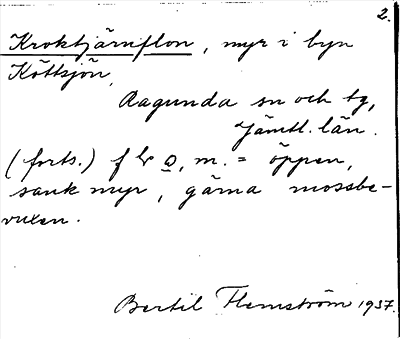 2.
Kroktjärnflon, myr i byn
Köttsjön,
Ragunda sn och tg,
Jämtl. län.
(forts.) , m. = öppen,
sank myr, gärna mossbe-
vuxen.
Bertil Flemström 1937.